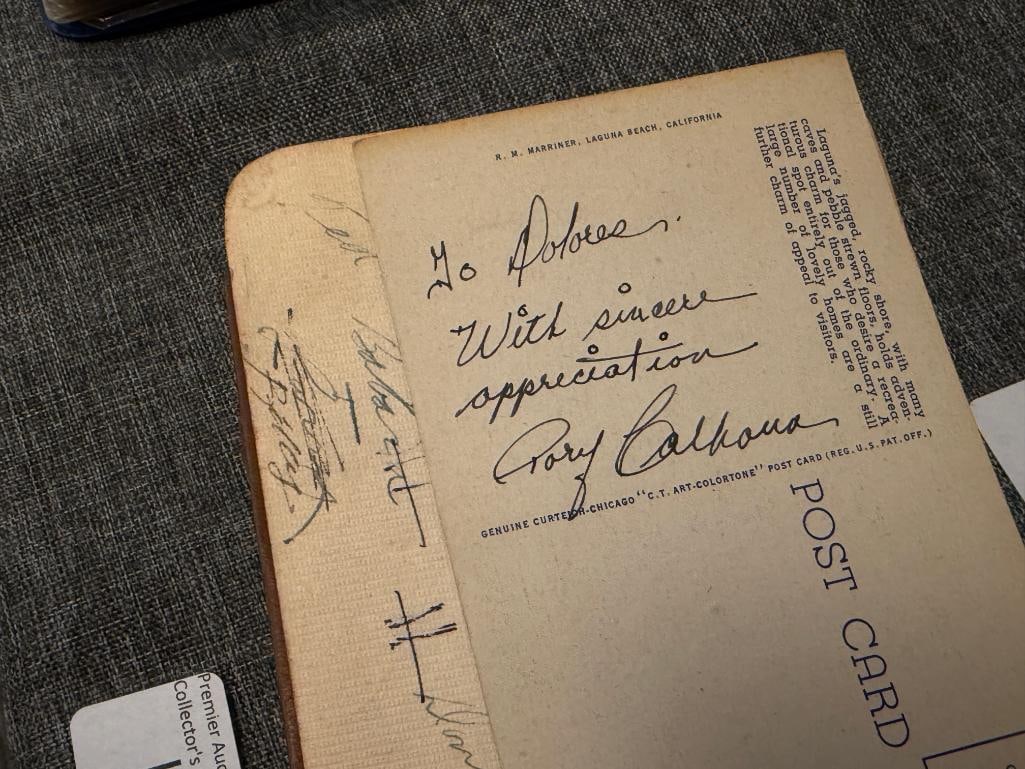 R. M. MARRINER, LAGUNA BEACH, CALIFORNIA
To Dolores.
With sincere
appreciation
Rory Calhoun
GENUINE CURTEICH-CHICAGO "C.T. ART-COLORTONE" POST CARD (REG. U.S. PAT. OFF.)
Laguna's jagged, rocky shore, with many
caves and pebble strewn floors, holds adven-
turous charm for those who desire a recrea-
tional spot entirely out of the ordinary. A
large number of lovely homes are a still
further charm of appeal to visitors.
POST CARD
Premier Auc
Collector's